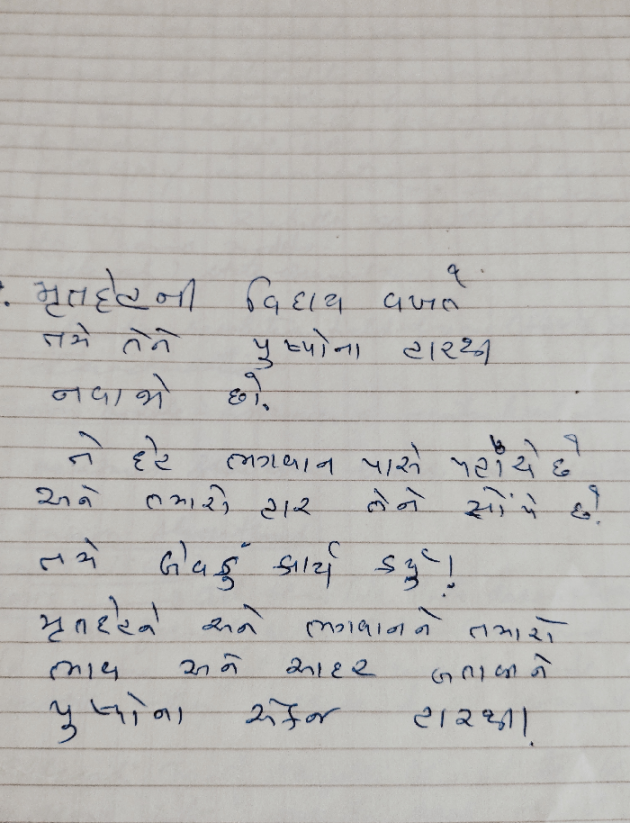 મૃતદેહની વિદાય વખતે
તમે તેને પુષ્પોના હારથી
નવાજો છો.
તે દેહ ભગવાન પાસે પહોંચે છે
અને તમારો હાર તેને સોંપે છે!
તમે બેવડું કાર્ય કર્યું!
મૃતદેહને અને ભગવાનને તમારો
ભાવ અને આદર બતાવીને
પુષ્પોના એકજ હારથી!